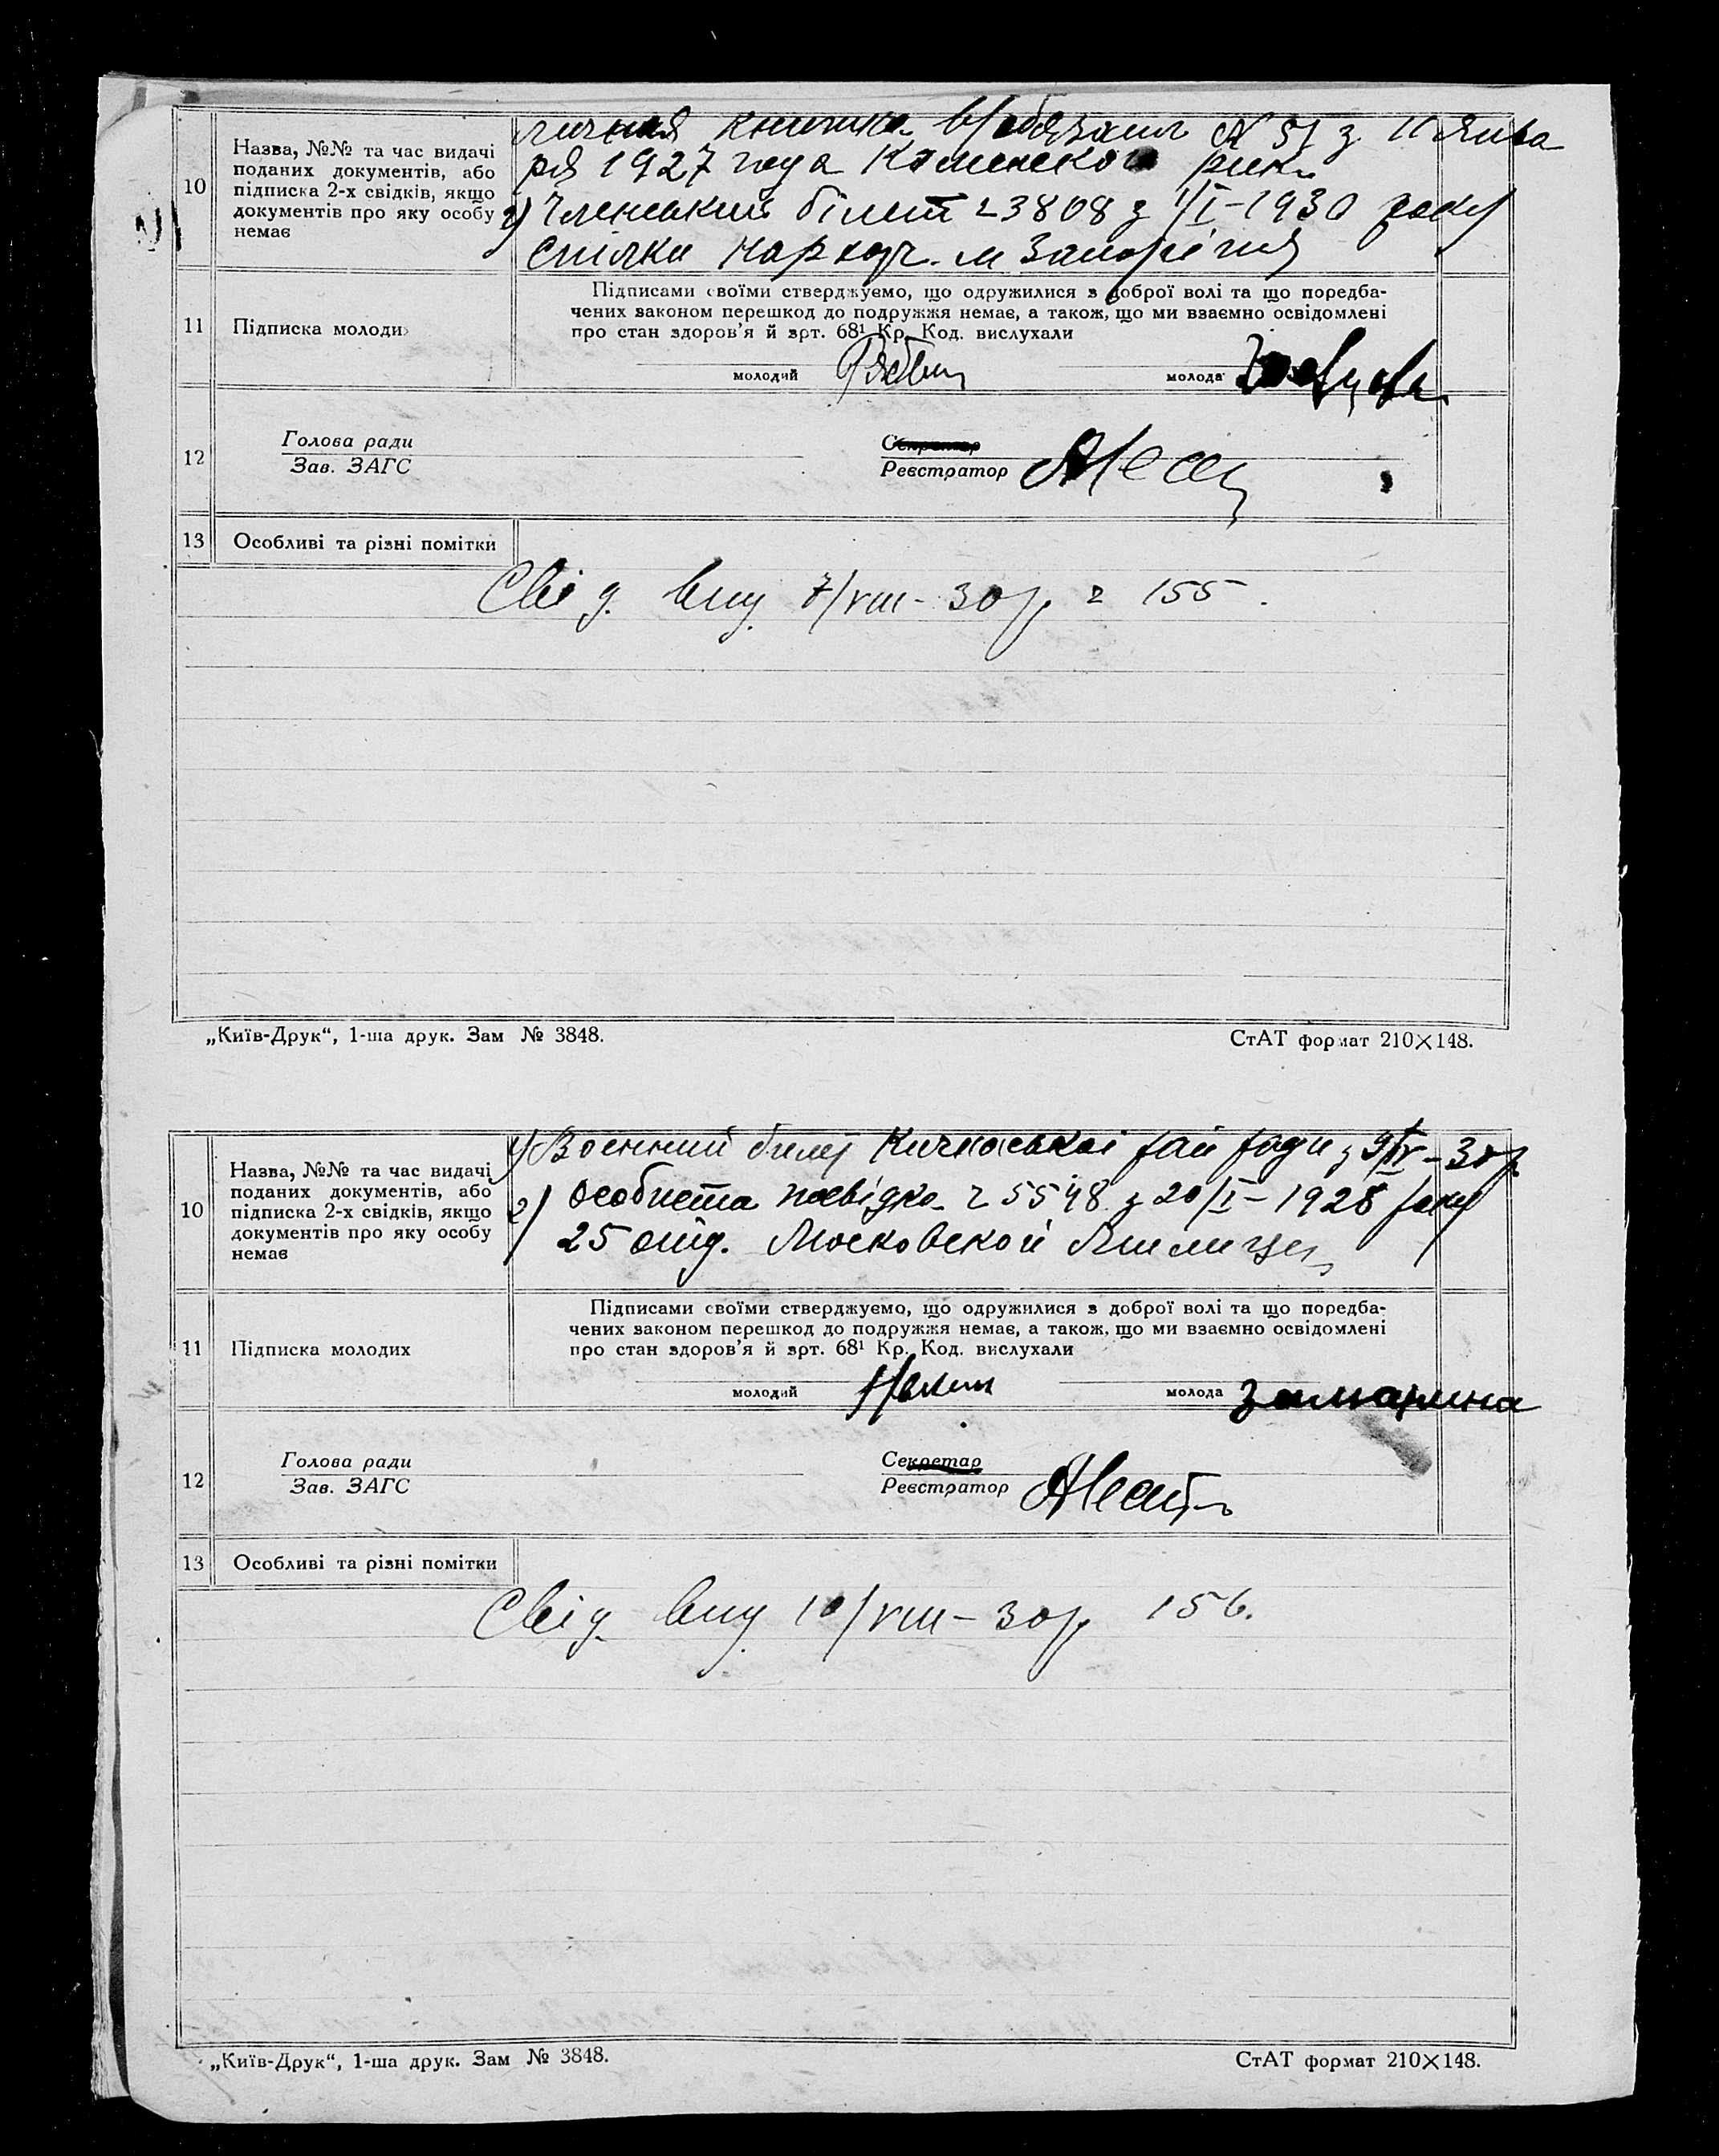 10
Назва, №№ та час видачі
поданих документів, або
підписка 2-х свідків, якщо
документів про яку особу
немає
личная книжка в/обязан N 51 з 11 янва
ря 1927 года Каменского рик.
2) Членський білет 23808 з 1/I-1930 року
Спілки Нархарч. м Запоріжжя
11
Підписка молодих
Підписами своїми стверджуємо, що одружилися з доброї волі та що поредба-
чених законом перешкод до подружжя немає, а також, що ми взаємно освідомлені
про стан здоров'я й арт. 68¹ Кр. Код. вислухали
молодий
молода
12
Голова ради
Зав. ЗАГС
Секретар
Реєстратор
13
Особливі та різні помітки
Свід. вид. 7/VIII-30 р. 155.
„Київ-Друк“, 1-ша друк. Зам № 3848.
СтАТ формат 210×148.
10
Назва, №№ та час видачі
поданих документів, або
підписка 2-х свідків, якщо
документів про яку особу
немає
1) Военний билет Кичкаської рай ради з 9/IV-30 р.
2) Особиста посвідка 5548 з 20/I-1928 року
25 отд. Московской Милиции
11
Підписка молодих
Підписами своїми стверджуємо, що одружилися з доброї волі та що поредба-
чених законом перешкод до подружжя немає, а також, що ми взаємно освідомлені
про стан здоров'я й арт. 68¹ Кр. Код. вислухали
молодий
молода Замарина
12
Голова ради
Зав. ЗАГС
Секретар
Реєстратор
13
Особливі та різні помітки
Свід. вид. 10/VIII-30 р. 156.
„Київ-Друк“, 1-ша друк. Зам № 3848.
СтАТ формат 210×148.